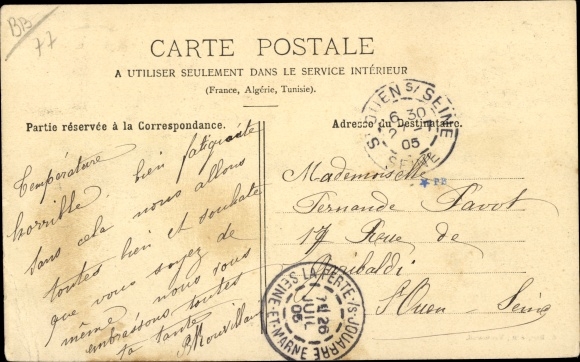 BB
77
CARTE POSTALE
A UTILISER SEULEMENT DANS LE SERVICE INTÉRIEUR
(France, Algérie, Tunisie).
Partie réservée à la Correspondance.
Adresse du Destinataire.
Température
horrible, bien fatiguante
sans cela nous allons
toutes bien et souhaite
que vous soyez de
même nous vous
embrassons toutes
ta tante
ST OUEN S/ SEINE
6 30
05
SEINE
PB
Mademoiselle
Fernande Pavot
17 Rue de
Garibaldi
St Ouen - Seine
LA FERTÉ-S/S-JOUARRE
26
JUIL
05
SEINE-ET-MARNE